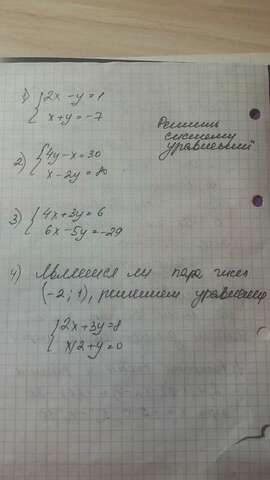 1) {2x - y = 1
x + y = -7
Решить
систему
уравнений
2) {4y - x = 30
x - 2y = 80
3) {4x + 3y = 6
6x - 5y = -29
4) Является ли пара чисел
(-2; 1), решением уравнения
{2x + 3y = 8
x/2 + y = 0